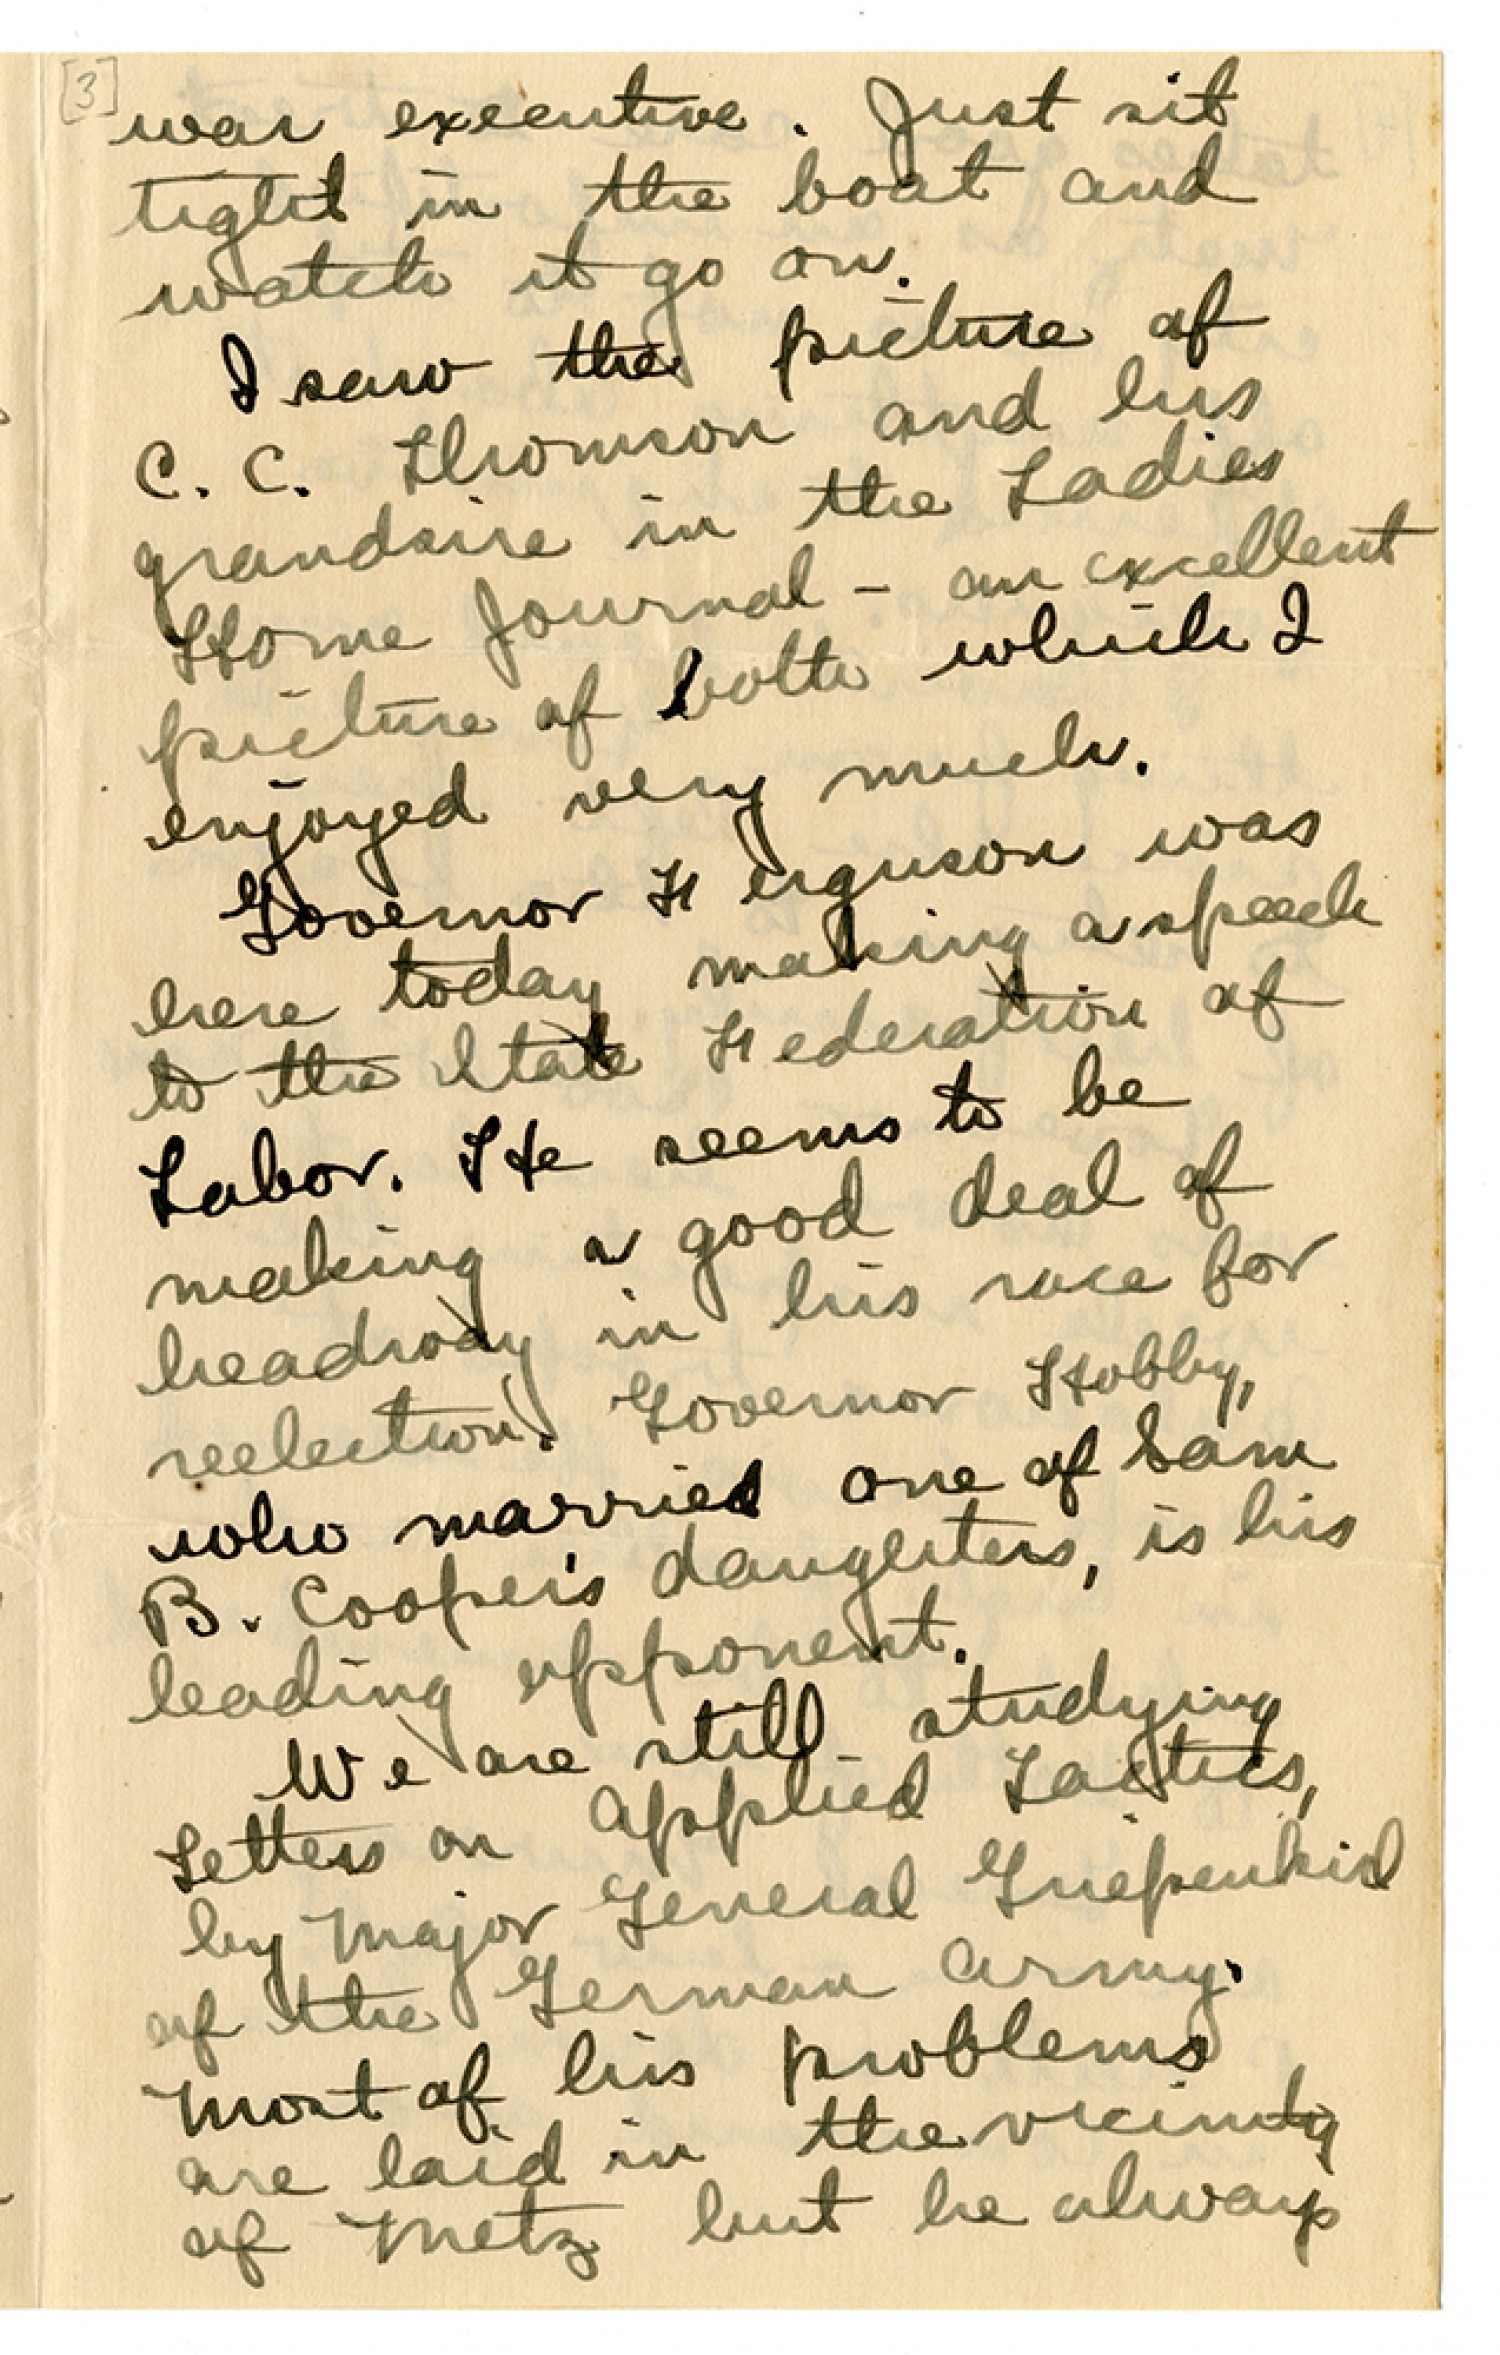 [3]
war executive. Just sit
tight in the boat and
watch it go on.
I saw the picture of
C. C. Thomson and his
grandsire in the Ladies
Home Journal - an excellent
picture of both which I
enjoyed very much.
Governor Ferguson was
here today making a speech
to the State Federation of
Labor. He seems to be
making a good deal of
headway in his race for
reelection. Governor Hobby,
who married one of Sam
B. Cooper's daughters, is his
leading opponent.
We are still studying
Letters on Applied Tactics,
by Major General Griepenkirl
of the German army.
Most of his problems
are laid in the vicinity
of Metz but he always